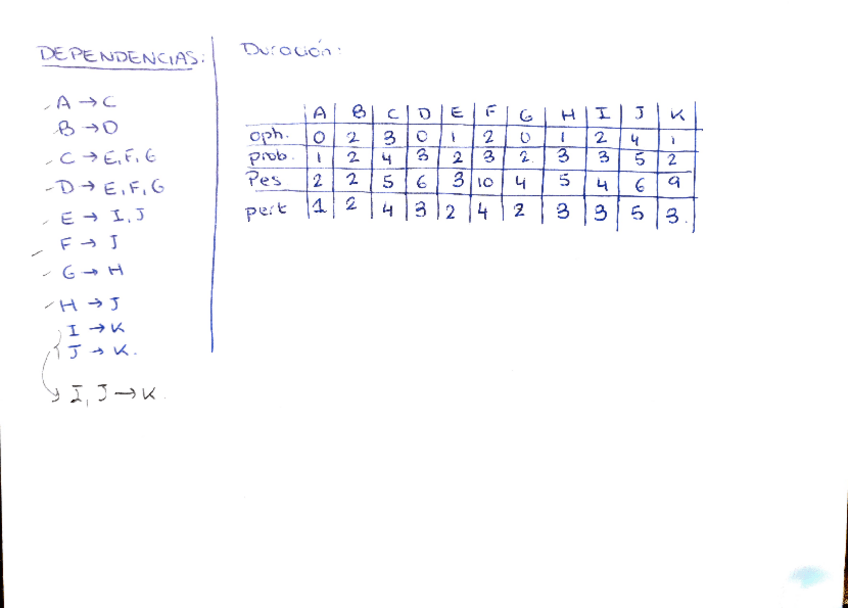 DEPENDENCIAS:
A → C
B → D
C → E, F, G
D → E, F, G
E → I, J
F → J
G → H
H → J
I → K
J → K.
I, J → K.
Duración:
A B C D E F G H I J K
oph. 0 2 3 0 1 2 0 1 2 4 1
prob. 1 2 4 3 2 3 2 3 3 5 2
Pes 2 2 5 6 3 10 4 5 4 6 9
pert 1 2 4 3 2 4 2 3 3 5 3.